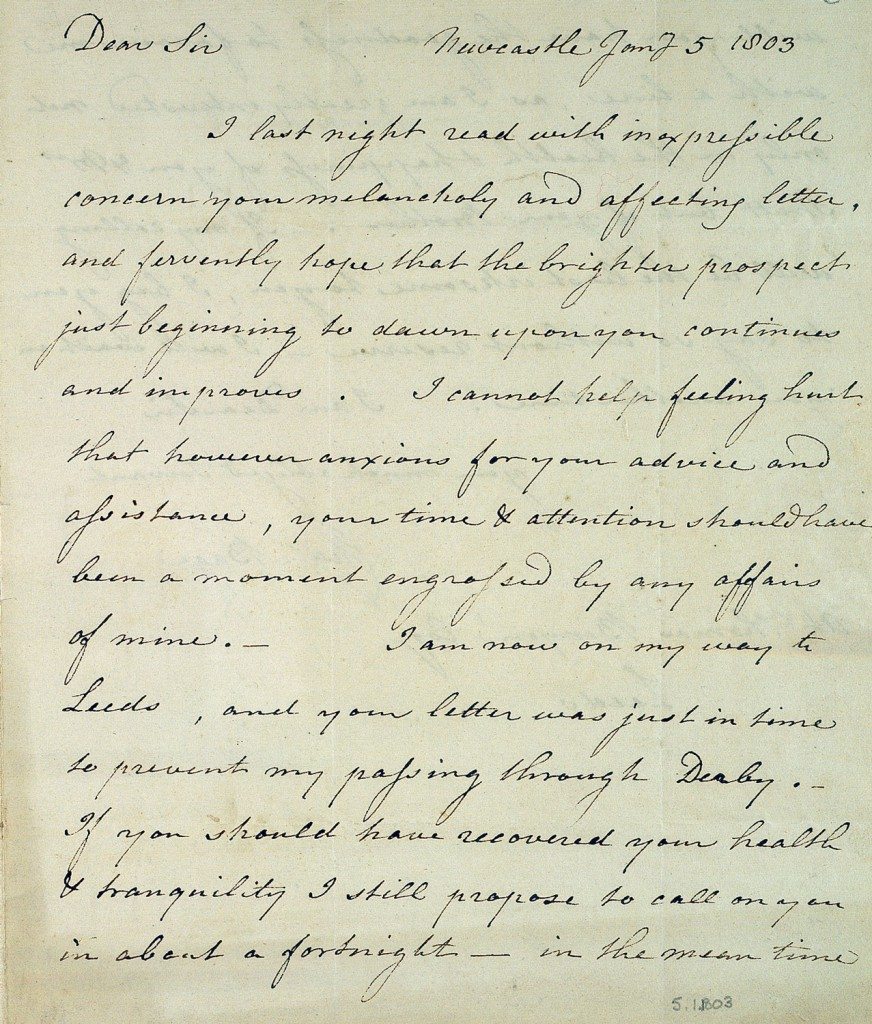 Dear Sir Newcastle Jany 5 1803
I last night read with inexpressible
concern your melancholy and affecting letter,
and fervently hope that the brighter prospect
just beginning to dawn upon you continues
and improves . I cannot help feeling hurt
that however anxious for your advice and
assistance , your time & attention should have
been a moment engrossed by any affairs
of mine . – I am now on my way to
Leeds , and your letter was just in time
to prevent my passing through Derby . –
If you should have recovered your health
& tranquility I still propose to call on you
in about a fortnight – in the mean time
5.1.1803